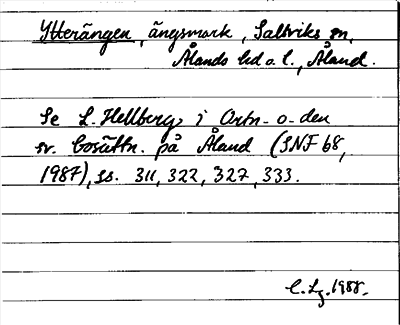 Ytterängen, ängsmark, Saltviks sn,
Ålands hd o. l., Åland.
Se L. Hellberg, i Ortn- o- den
sv. bosättn. på Åland (SNF 68,
1987), ss. 311, 322, 327, 333.
C. Lg. 1988.